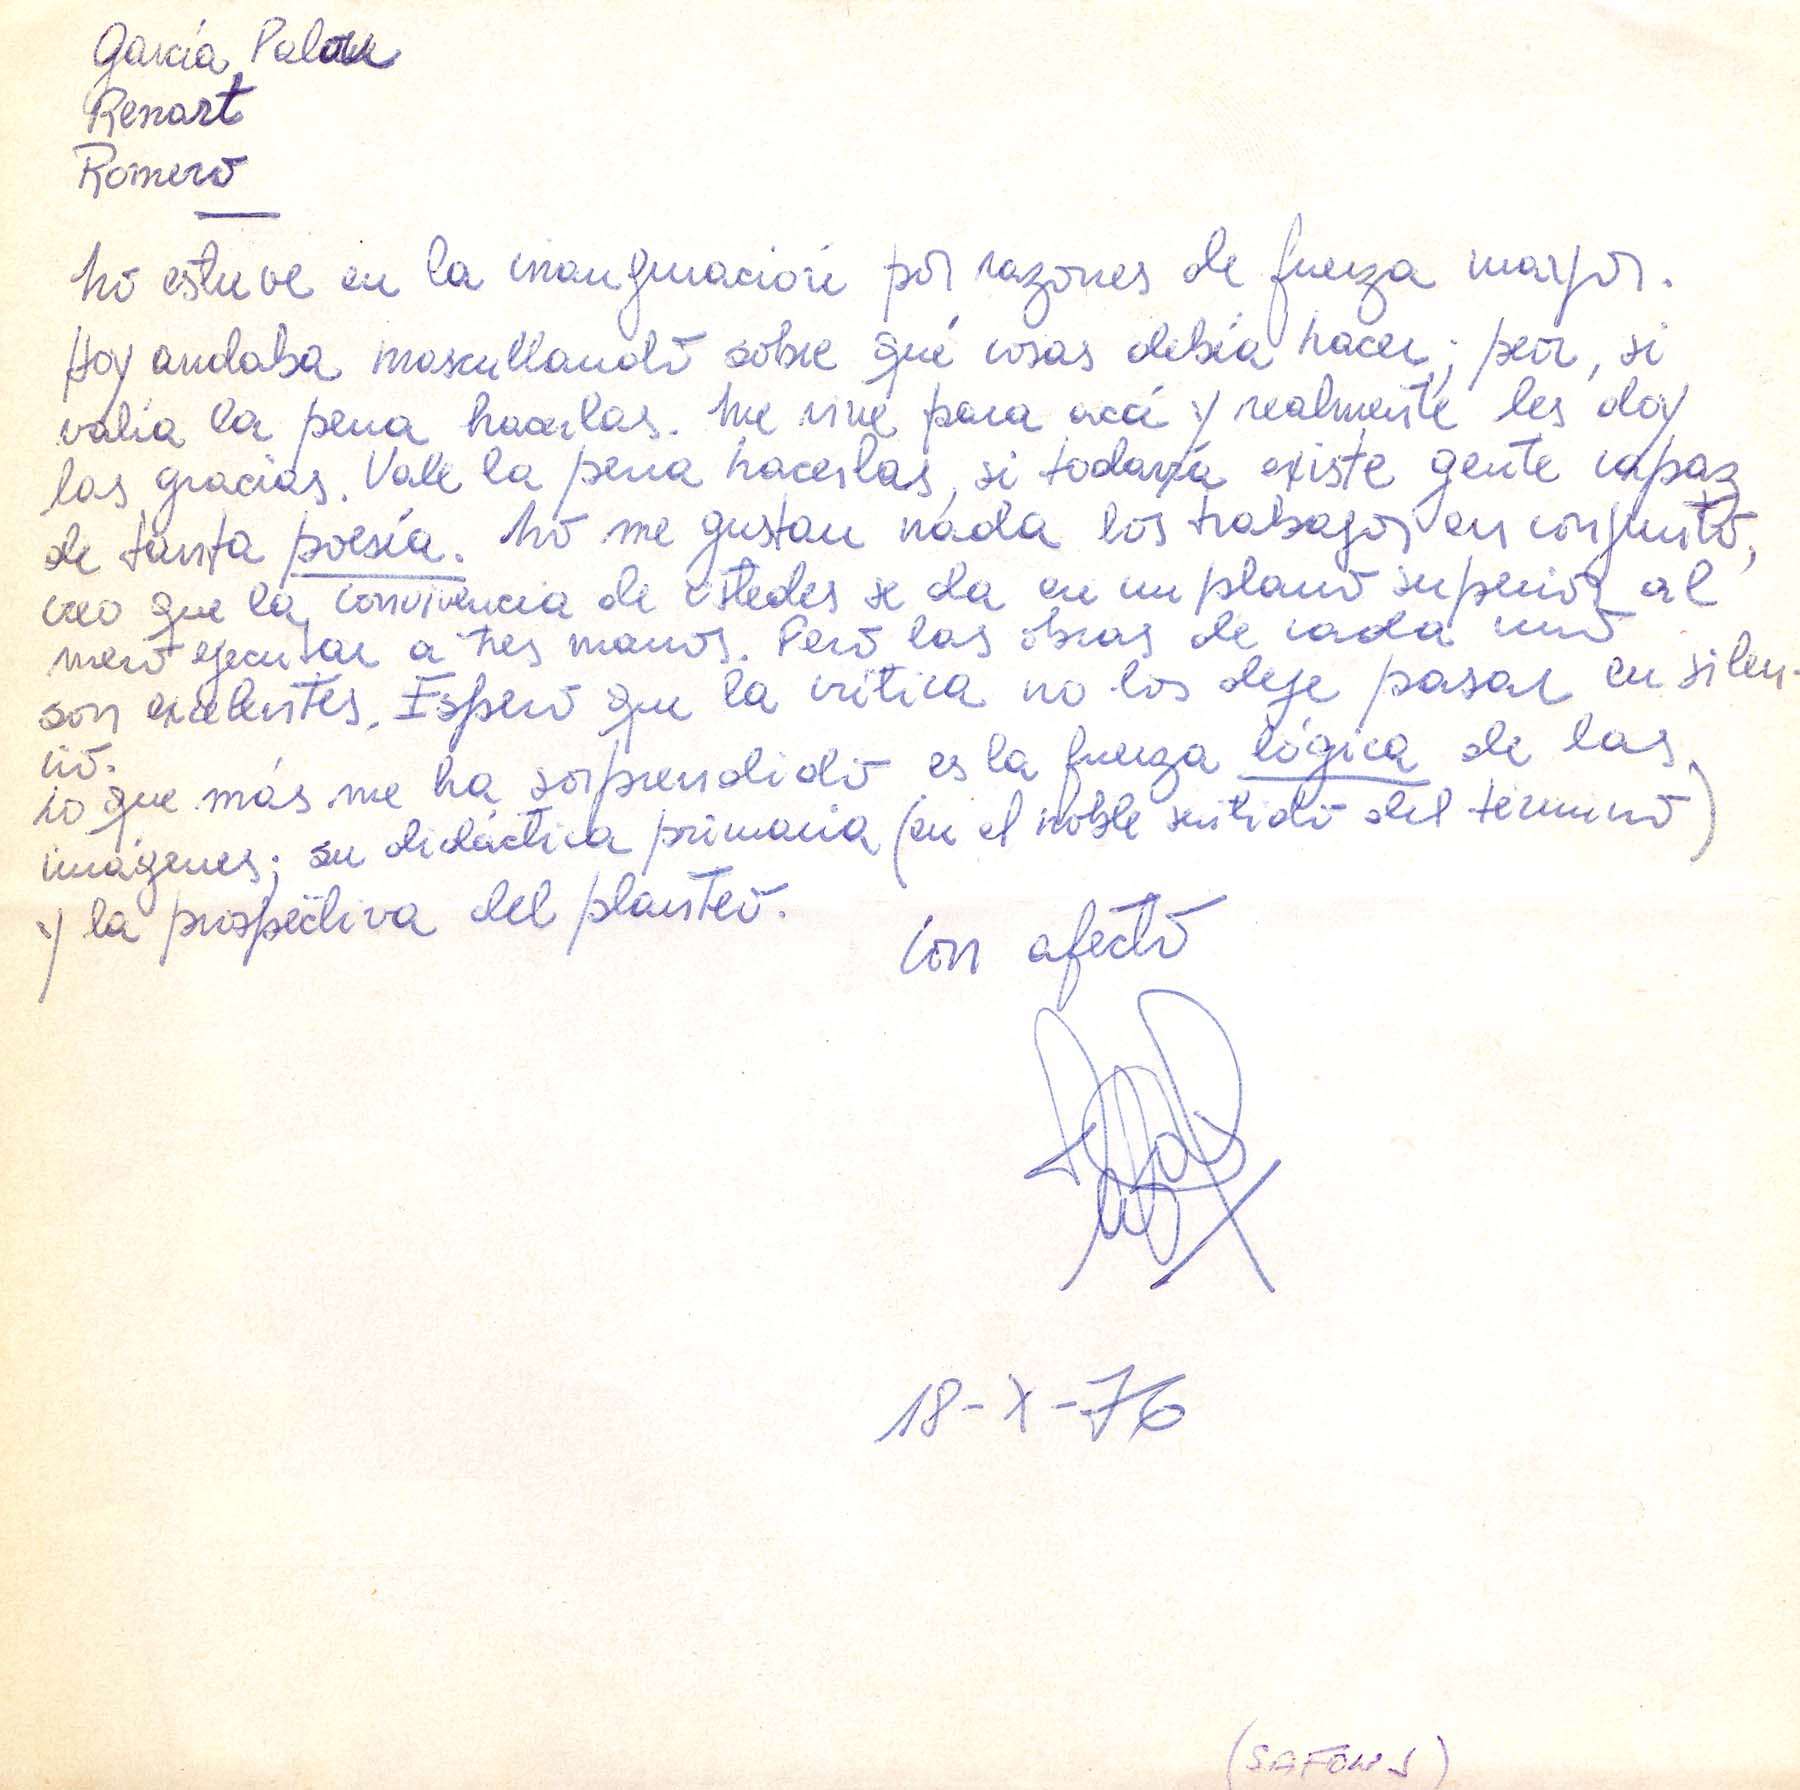 García Palou
Renart
Romero
No estuve en la inauguración por razones de fuerza mayor.
Hoy andaba mascullando sobre qué cosas debía hacer; peor, si
valía la pena hacerlas. Me vine para acá y realmente les doy
las gracias. Vale la pena hacerlas, si todavía existe gente capaz
de tanta poesía. No me gustan nada los trabajos en conjunto,
creo que la convivencia de ustedes se da en un plano superior al
mero ejecutar a tres manos. Pero las obras de cada uno
son excelentes. Espero que la crítica no los deje pasar en silen-
cio.
Lo que más me ha sorprendido es la fuerza lógica de las
imágenes; su didáctica primaria (en el noble sentido del término)
y la prospectiva del planteo.
Con afecto
18-X-76